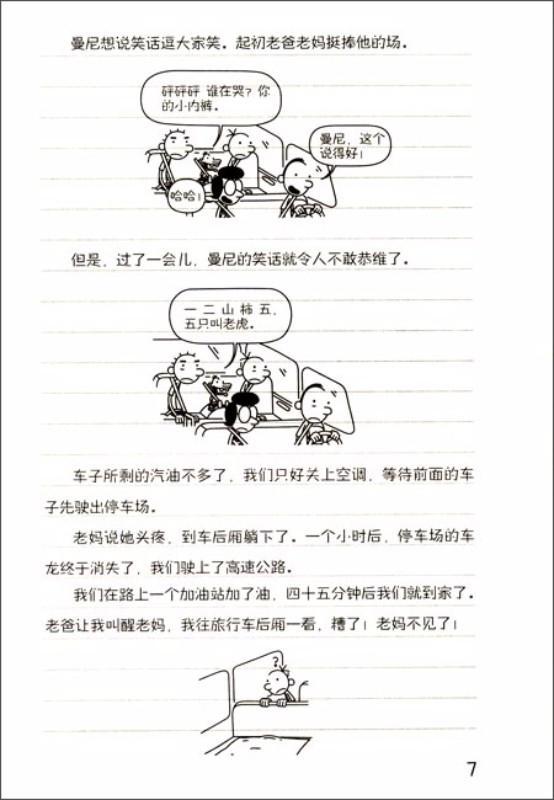 曼尼想说笑话逗大家笑。起初老爸老妈挺捧他的场。
砰砰砰 谁在哭？你
的小内裤。
曼尼，这个
说得好！
哈哈！
但是，过了一会儿，曼尼的笑话就令人不敢恭维了。
一 二 山 柿 五，
五只叫老虎。
车子所剩的汽油不多了，我们只好关上空调，等待前面的车
子先驶出停车场。
老妈说她头疼，到车后厢躺下了。一个小时后，停车场的车
龙终于消失了，我们驶上了高速公路。
我们在路上一个加油站加了油，四十五分钟后我们就到家了。
老爸让我叫醒老妈，我往旅行车后厢一看，糟了！老妈不见了！
?
7